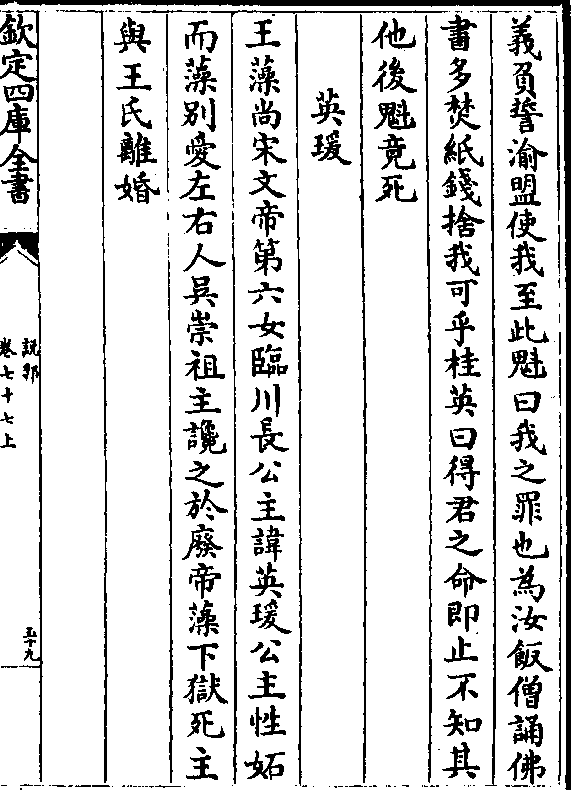 義負誓渝盟使我至此魁曰我之罪也為汝飯僧誦佛
書多焚紙錢捨我可乎桂英曰得君之命即止不知其
他後魁竟死
英瑗
王藻尚宋文帝第六女臨川長公主諱英瑗公主性妬
而藻別愛左右人吳崇祖主讒之於廢帝藻下獄死主
與王氏離婚
欽定四庫全書
說郛
卷七十七上
五十九